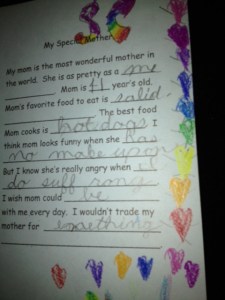 My Special Mother
My mom is the most wonderful mother in
the world. She is as pretty as a me
Mom is year's old.
Mom's favorite food to eat is salid.
The best food
Mom cooks is hot dogs. I
think mom looks funny when she has
no make upon
But I know she's really angry when I
do suff rong
I wish mom could be
with me every day. I wouldn't trade my
mother for enething